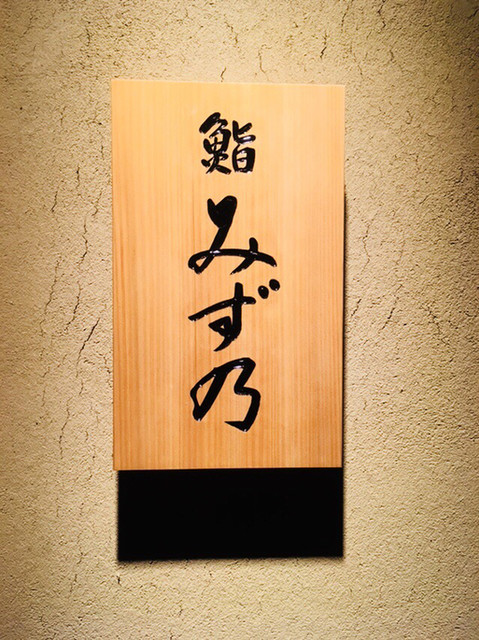 鮨
みず乃